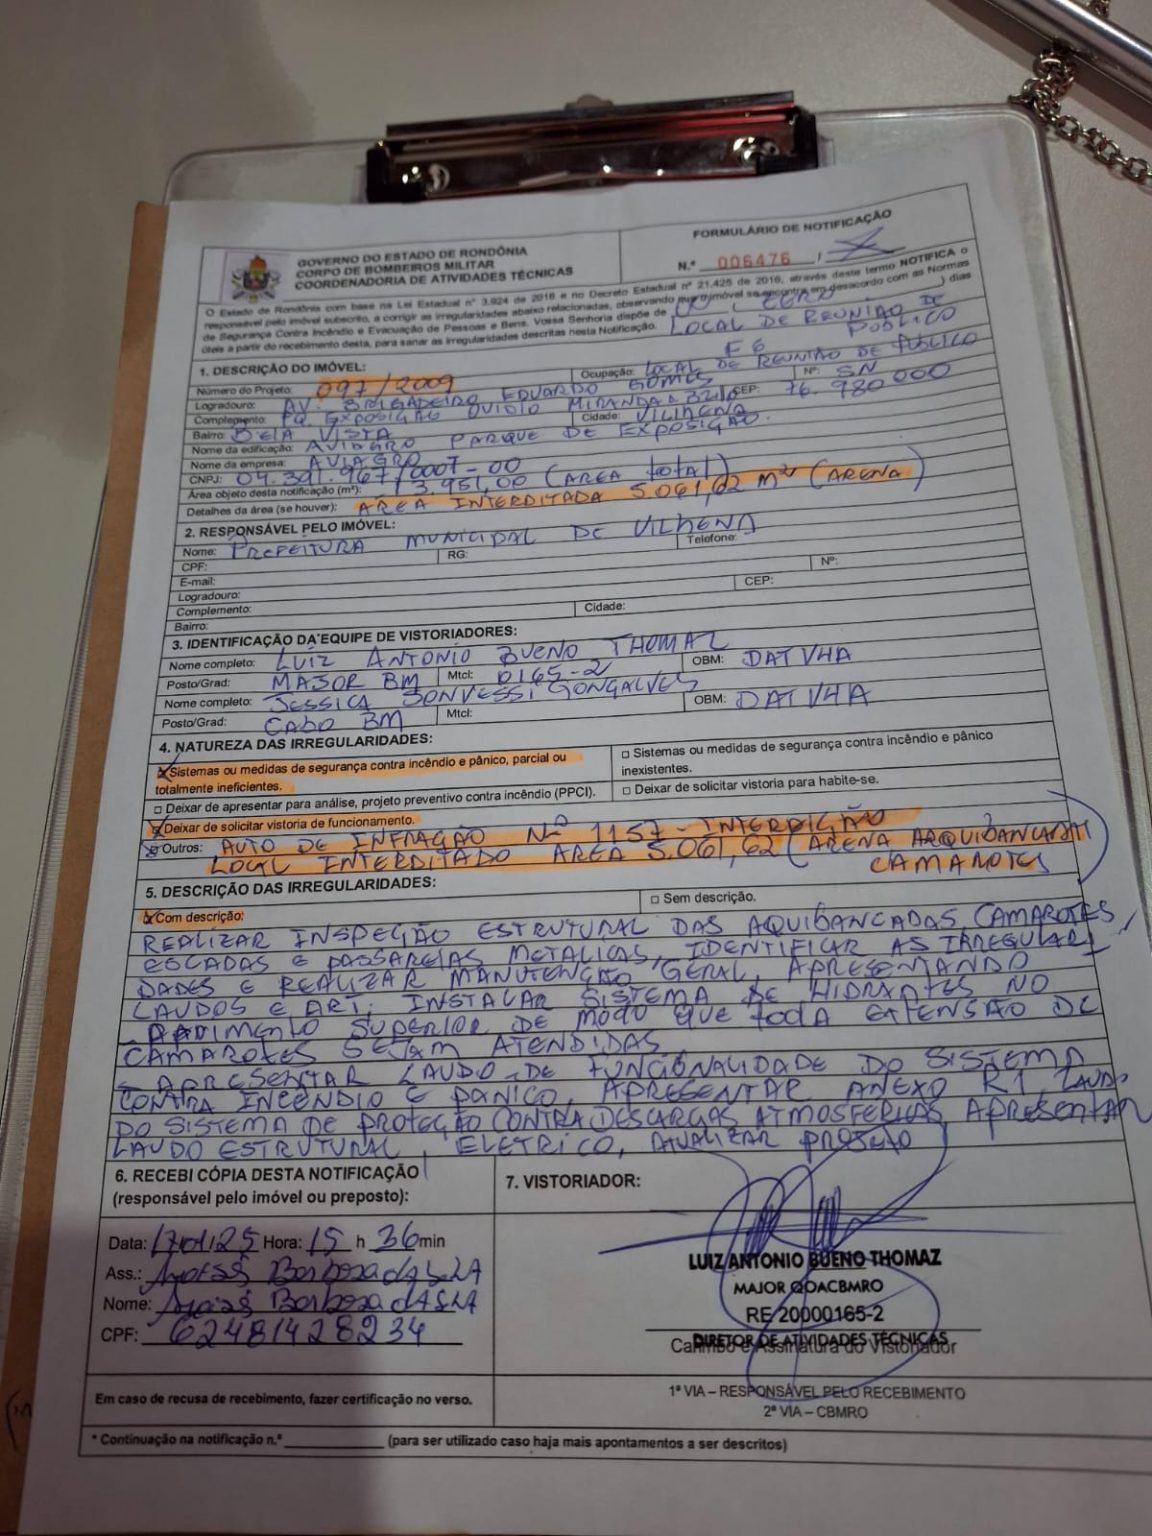 GOVERNO DO ESTADO DE RONDÔNIA
CORPO DE BOMBEIROS MILITAR
COORDENADORIA DE ATIVIDADES TÉCNICAS
FORMULÁRIO DE NOTIFICAÇÃO
N.º 006476 /
O Estado de Rondônia com base na Lei Estadual n° 3.924 de 2016 e no Decreto Estadual n° 21.425 de 2016, através deste termo NOTIFICA o
responsável pelo imóvel subscrito, a corrigir as irregularidades abaixo relacionadas, observando que o imóvel se encontra em desacordo com as Normas
de Segurança Contra Incêndio e Evacuação de Pessoas e Bens. Vossa Senhoria dispõe de 00 ( ZERO ) dias
úteis a partir do recebimento desta, para sanar as irregularidades descritas nesta Notificação. LOCAL DE REUNIÃO DE PÚBLICO
1. DESCRIÇÃO DO IMÓVEL: F6
Número do Projeto: 097/2009 Ocupação: LOCAL DE REUNIÃO DE PÚBLICO
Logradouro: AV. BRIGADEIRO EDUARDO GOMES Nº: SN
Complemento: PQ. EXPOSIÇÃO OVIDIO MIRANDA BRITO CEP: 76.980000
Bairro: BELA VISTA Cidade: VILHENA
Nome da edificação: AVIAGRO PARQUE DE EXPOSIÇÃO.
Nome da empresa: AVIAGRO
CNPJ: 04.391.967/0007-00
Área objeto desta notificação (m²): 3.951,00 (AREA total)
Detalhes da área (se houver): AREA INTERDITADA 5.061,62 m² (ARENA)
2. RESPONSÁVEL PELO IMÓVEL:
Nome: PREFEITURA MUNICIPAL DE VILHENA
CPF: RG: Telefone:
E-mail:
Logradouro: Nº:
Complemento: CEP:
Bairro: Cidade:
3. IDENTIFICAÇÃO DA EQUIPE DE VISTORIADORES:
Nome completo: LUIZ ANTONIO BUENO THOMAZ
Posto/Grad: MAJOR BM Mtcl: 0165-2 OBM: DAT VHA
Nome completo: JESSICA GONÇALVES
Posto/Grad: CABO BM Mtcl: OBM: DAT VHA
4. NATUREZA DAS IRREGULARIDADES:
☒ Sistemas ou medidas de segurança contra incêndio e pânico, parcial ou
totalmente ineficientes.
□ Sistemas ou medidas de segurança contra incêndio e pânico
inexistentes.
□ Deixar de apresentar para análise, projeto preventivo contra incêndio (PPCI).
□ Deixar de solicitar vistoria para habite-se.
☒ Deixar de solicitar vistoria de funcionamento.
☒ Outros: AUTO DE INFRAÇÃO Nº 1157 - INTERDIÇÃO
LOCAL INTERDITADO AREA 5.061,62 (ARENA ARQUIBANCADA
CAMAROTES)
5. DESCRIÇÃO DAS IRREGULARIDADES:
☒ Com descrição: □ Sem descrição.
REALIZAR INSPEÇÃO ESTRUTURAL DAS AQUIBANCADAS, CAMAROTES,
ESCADAS E PASSARELAS METALICAS, IDENTIFICAR AS IRREGULARI
DADES E REALIZAR MANUTENÇÃO GERAL, APRESENTANDO
LAUDOS E ART; INSTALAR SISTEMA DE HIDRANTES NO
PAVIMENTO SUPERIOR DE MODO QUE TODA EXTENSÃO DE
CAMAROTES SEJAM ATENDIDAS
- APRESENTAR LAUDO DE FUNCIONALIDADE DO SISTEMA
CONTRA INCÊNDIO E PANICO, APRESENTAR ANEXO R1 LAUDO
DO SISTEMA DE PROTEÇÃO CONTRA DESCARGAS ATMOSFERICAS APRESENTAR
LAUDO ESTRUTURAL, ELETRICO, ATUALIZAR PROJETO
6. RECEBI CÓPIA DESTA NOTIFICAÇÃO
(responsável pelo imóvel ou preposto):
Data: 17/01/25 Hora: 15 h 36 min
Ass.: Barbosa da Silva
Nome: Barbosa da Silva
CPF: 62481428234
Em caso de recusa de recebimento, fazer certificação no verso.
7. VISTORIADOR:
LUIZ ANTONIO BUENO THOMAZ
MAJOR QOACBMRO
RE 20000165-2
DIRETOR DE ATIVIDADES TÉCNICAS
Carimbo e Assinatura do Vistoriador
1ª VIA – RESPONSÁVEL PELO RECEBIMENTO
2ª VIA – CBMRO
* Continuação na notificação n.º (para ser utilizado caso haja mais apontamentos a ser descritos)